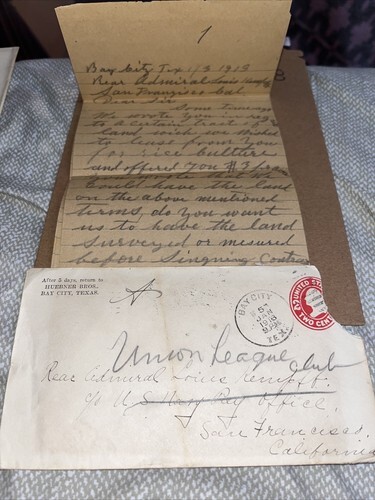 1
Bay City, Tex 1/3 1908
Rear Admiral Louis
San Franzisco Cal.
Dear Sir.
Some time ago
We wrote you in
to a certain tract of
land wich we wished
to lease from You
for rice culture
and offered you $3
could have the land
on the above mentioned
terms, do you want
us to have the land
surveyed or mesured
before Singning Contract
After 5 days, return to
HUEBNER BROS.
BAY CITY, TEXAS.
BAY CITY
JAN
TEX.
UNITED STATES
TWO CENTS
Union League Club
Rear Admiral Louis Kempff.
c/o U.S. Navy Pay Office,
San Francisco,
California